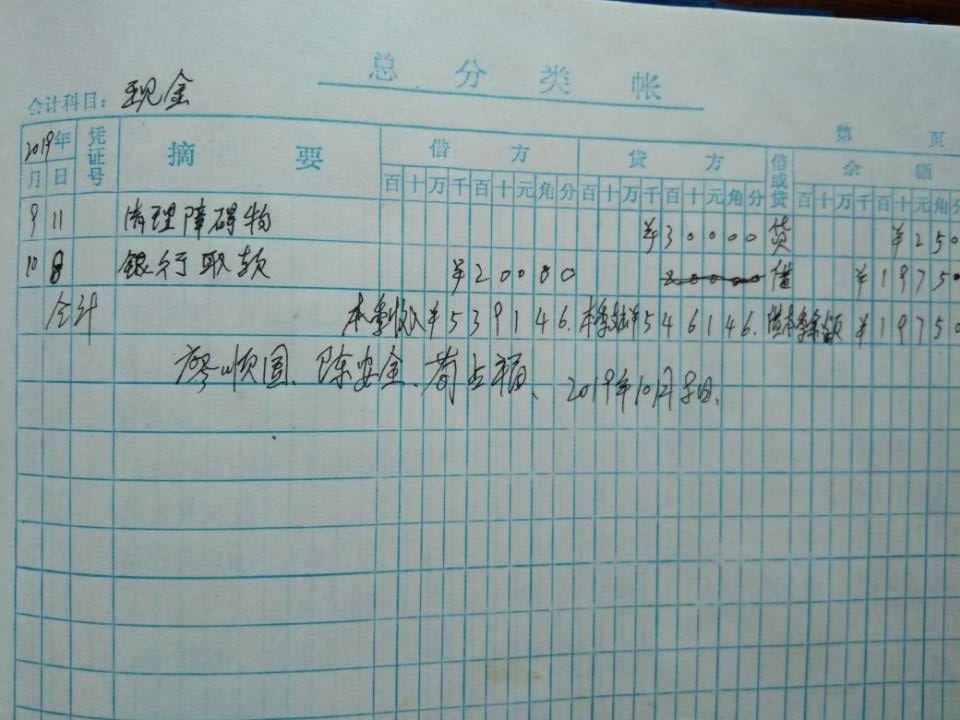 总分类帐
会计科目：现金
第 页
2019年 凭证号 摘要 借方 贷方 借或贷 余额
月 日 百十万千百十元角分 百十万千百十元角分 百十万千百十元角分
9 11 清理障碍物 ¥30000 贷 ¥250
10 8 银行取款 ¥200000 借 ¥19750
合计 本季收入¥539146. 本季支出¥546146. 借本季余额¥19750
廖顺国、陈安全、苟占福、2019年10月8日.